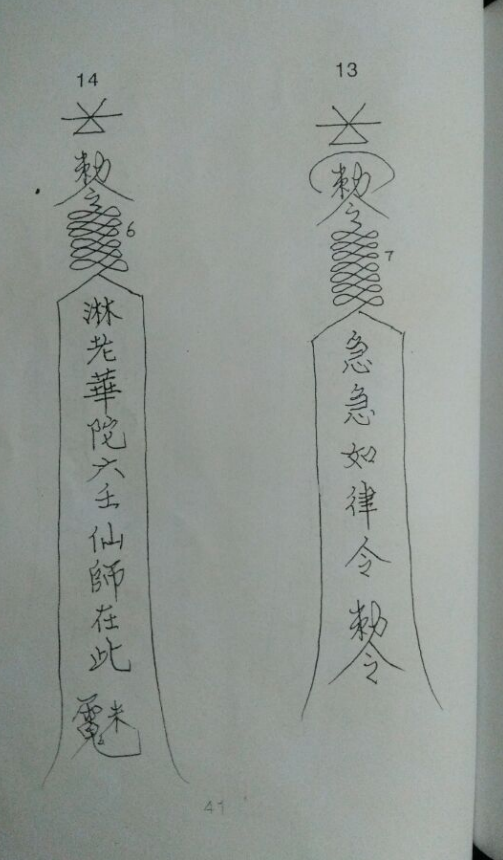 13
勅令
7
急急如律令
勅令
14
勅令
6
淋老華陀六壬仙師在此
41